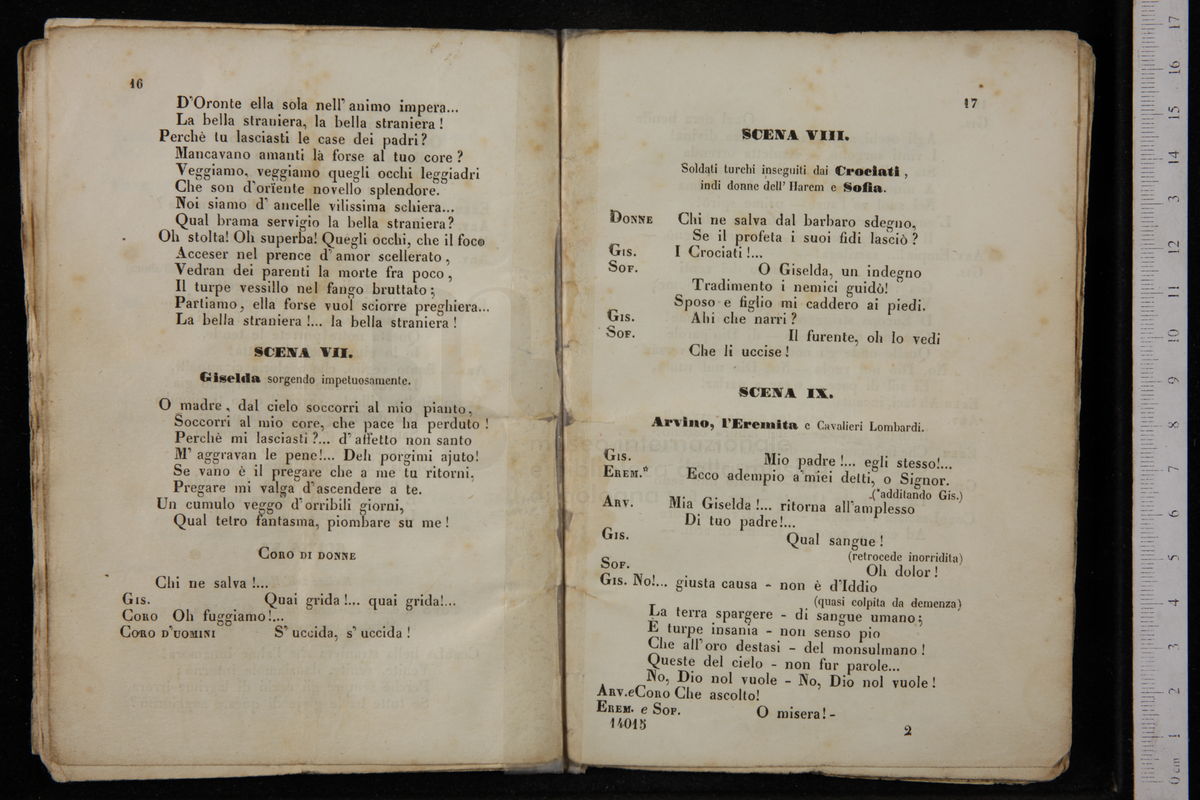 16
D'Oronte ella sola nell' animo impera...
La bella straniera, la bella straniera!
Perchè tu lasciasti le case dei padri?
Mancavano amanti là forse al tuo core?
Veggiamo, veggiamo quegli occhi leggiadri
Che son d'oriente novello splendore.
Noi siamo d' ancelle vilissima schiera...
Qual brama servigio la bella straniera?
Oh stolta! Oh superba! Quegli occhi, che il foco
Acceser nel prence d' amor scellerato,
Vedran dei parenti la morte fra poco,
Il turpe vessillo nel fango bruttato;
Partiamo, ella forse vuol sciorre preghiera...
La bella straniera!... la bella straniera!
SCENA VII.
Giselda sorgendo impetuosamente.
O madre, dal cielo soccorri al mio pianto,
Soccorri al mio core, che pace ha perduto!
Perchè mi lasciasti?... d' affetto non santo
M' aggravan le pene!... Deh porgimi ajuto!
Se vano è il pregare che a me tu ritorni,
Pregare mi valga d'ascendere a te.
Un cumulo veggo d'orribili giorni,
Qual tetro fantasma, piombare su me!
CORO DI DONNE
Chi ne salva!...
GIS. Quai grida!... quai grida!...
CORO Oh fuggiamo!...
CORO D'UOMINI S' uccida, s' uccida!
17
SCENA VIII.
Soldati turchi inseguiti dai Crociati,
indi donne dell' Harem e Sofia.
DONNE Chi ne salva dal barbaro sdegno,
Se il profeta i suoi fidi lasciò?
GIS. I Crociati!...
SOF. O Giselda, un indegno
Tradimento i nemici guidò!
Sposo e figlio mi caddero ai piedi.
GIS. Ahi che narri?
SOF. Il furente, oh lo vedi
Che li uccise!
SCENA IX.
Arvino, l'Eremita e Cavalieri Lombardi.
GIS. Mio padre!... egli stesso!...
EREM.* Ecco adempio a'miei detti, o Signor.
(*additando Gis.)
ARV. Mia Giselda!... ritorna all'amplesso
Di tuo padre!...
GIS. Qual sangue!
(retrocede inorridita)
SOF. Oh dolor!
GIS. No!... giusta causa - non è d'Iddio
(quasi colpita da demenza)
La terra spargere - di sangue umano;
E turpe insania - non senso pio
Che all'oro destasi - del monsulmano!
Queste del cielo - non fur parole...
No, Dio nol vuole - No, Dio nol vuole!
ARV. e CORO Che ascolto!
EREM. e SOF. O misera! -
14015
2
0 cm 1 2 3 4 5 6 7 8 9 10 11 12 13 14 15 16 17